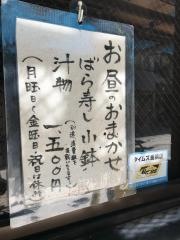 お昼のおまかせ
ばら寿し 小鉢
汁物
一、五〇〇円
(月曜日〜金曜日・祝日は休み)
タイムズ